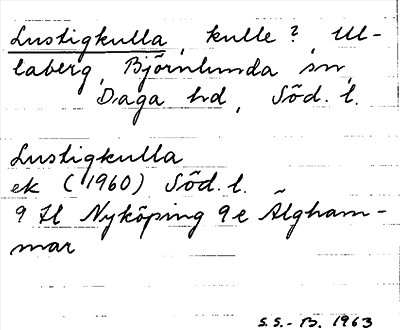 Lustigkulla, kulle?, Ul-
laberg, Björnlunda sn,
Daga hd, Söd. l.
Lustigkulla
ek (1960) Söd. l.
9 H Nyköping 9 e Älgham-
mar
S.S.-B. 1963